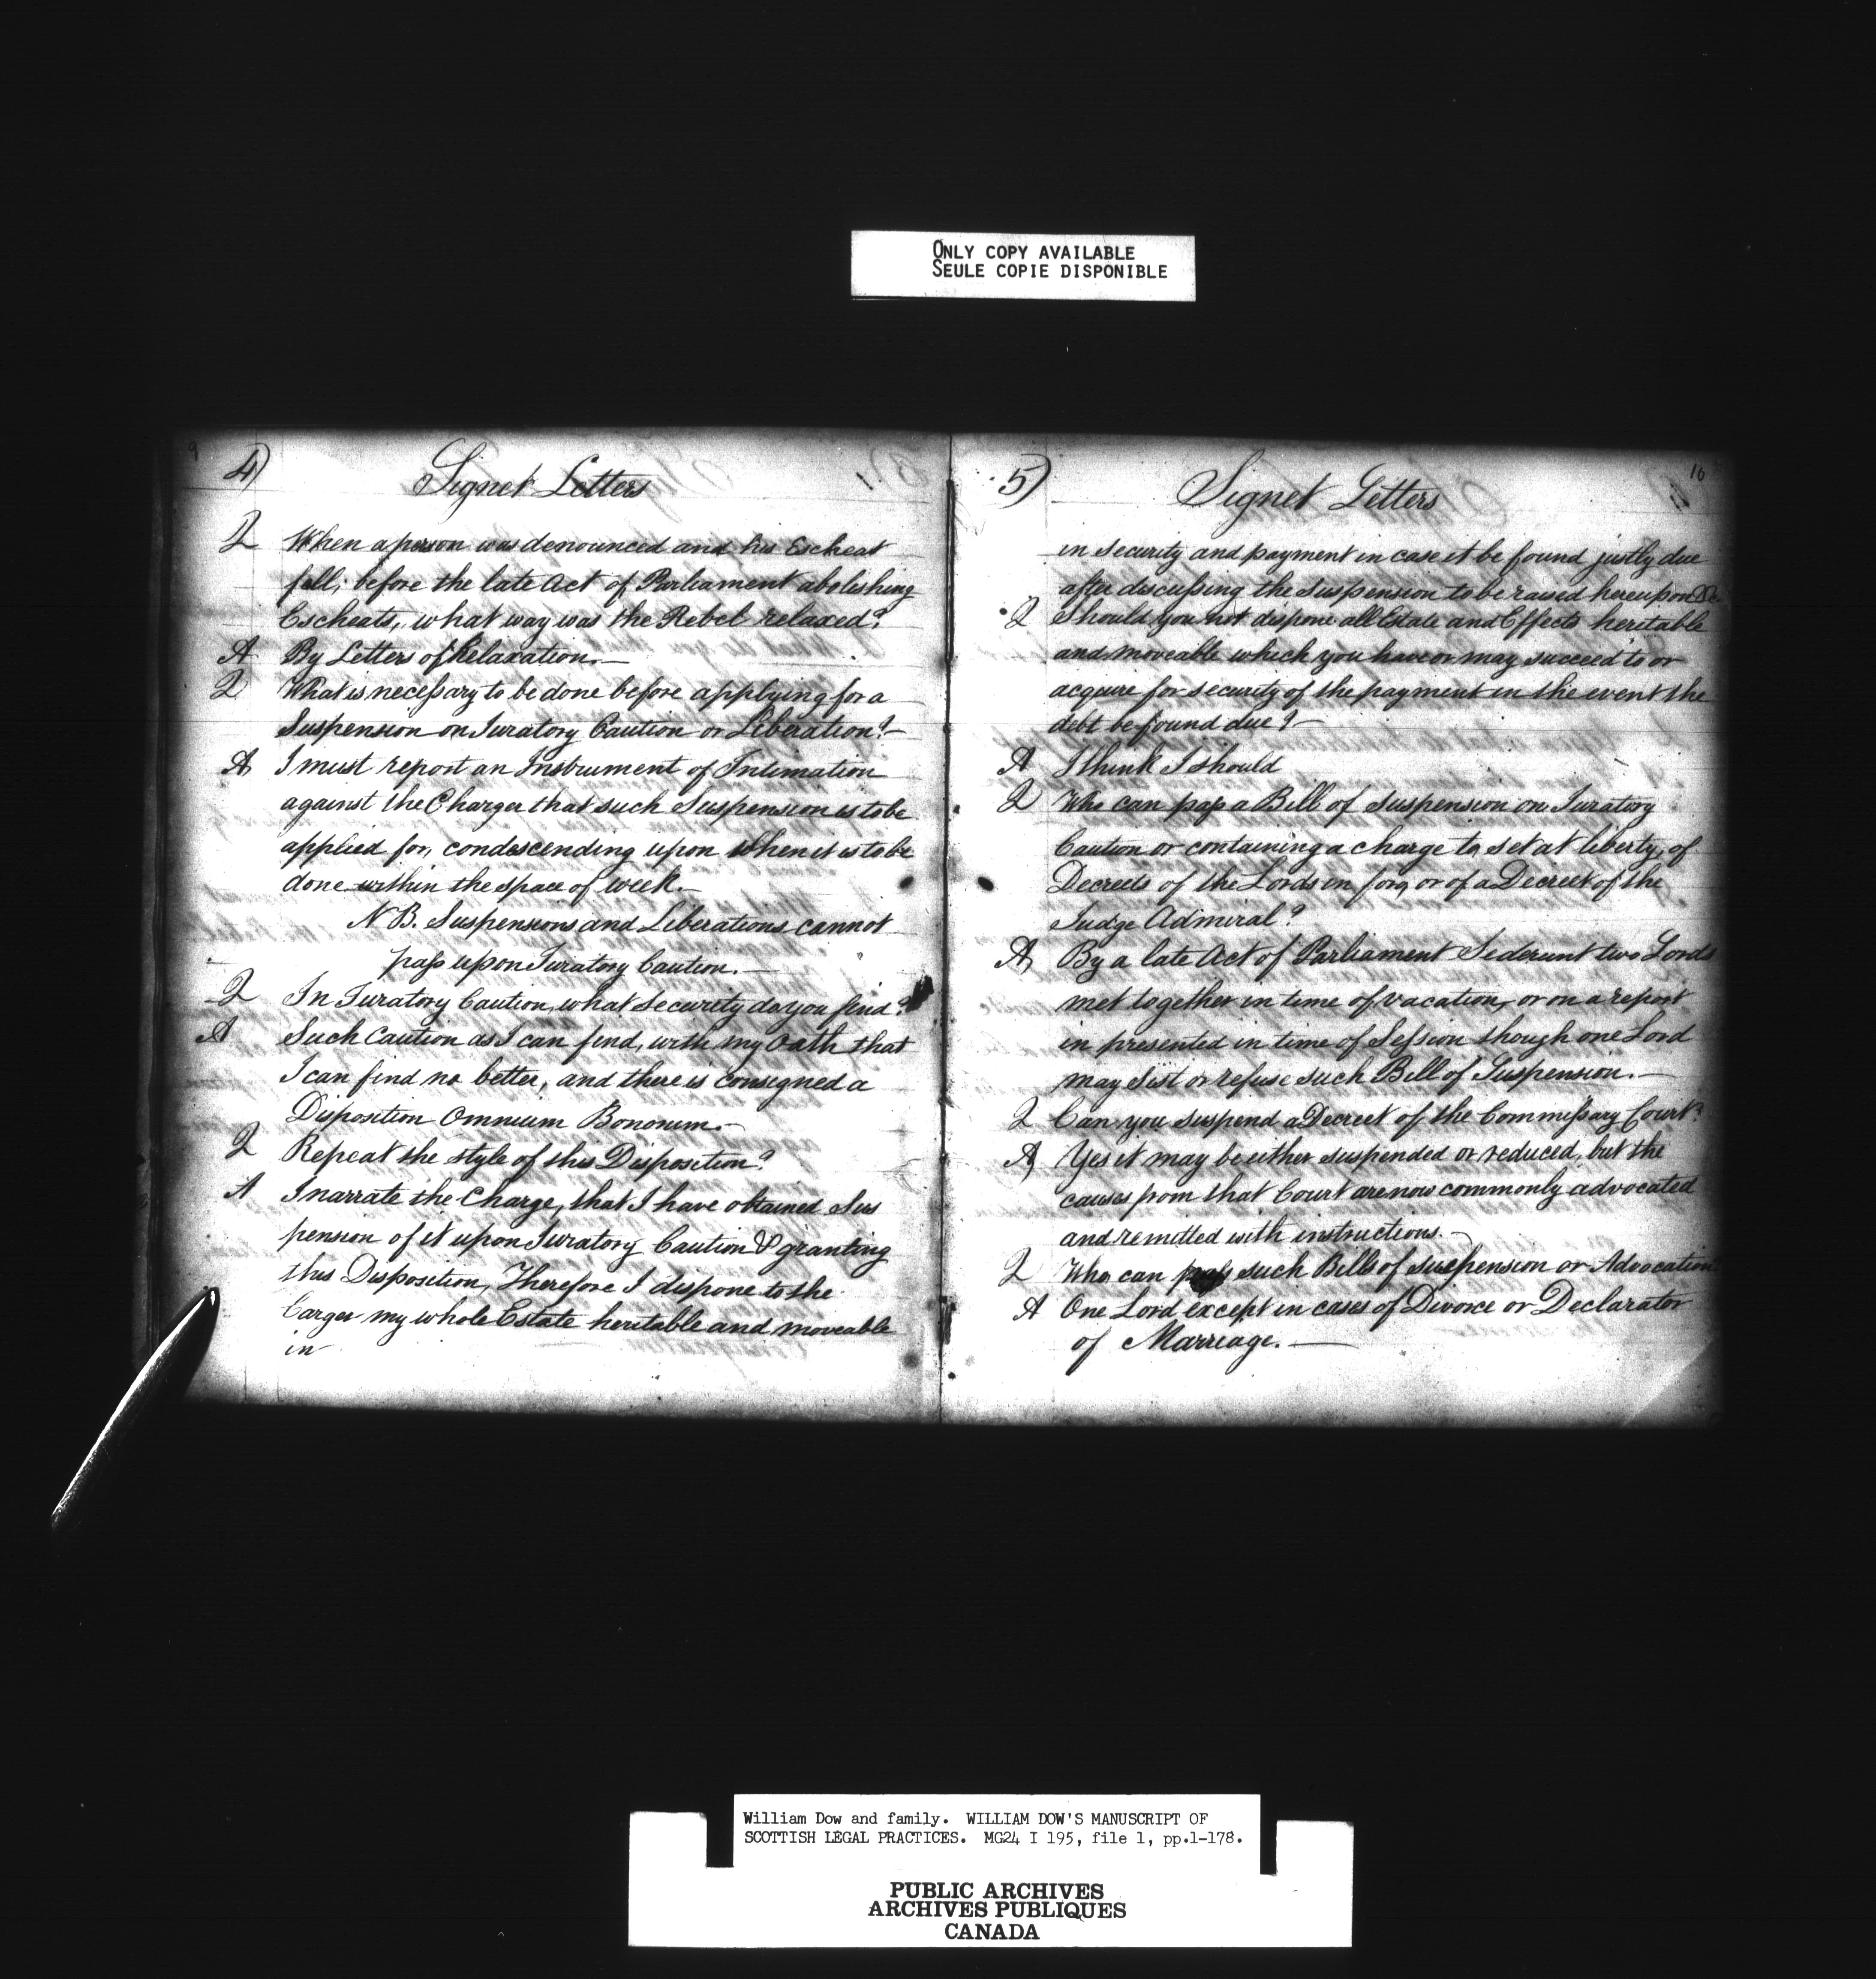 ONLY COPY AVAILABLE
SEULE COPIE DISPONIBLE
9
4)
Signet Letters
Q When a person was denounced and his Escheat
fell, before the late Act of Parliament abolishing
Escheats, what way was the Rebel relaxed?
A By Letters of Relaxation.—
Q What is necessary to be done before applying for a
Suspension on Juratory Caution or Liberation?—
A I must report an Instrument of Intimation
against the Charger that such Suspension is to be
applied for, condescending upon when it is to be
done within the space of week.—
NB. Suspensions and Liberations cannot
pass upon Juratory Caution.—
Q In Juratory Caution, what Security do you find?
A Such Caution as I can find, with my Oath that
I can find no better, and there is consigned a
Disposition Omnium Bonorum.—
Q Repeat the style of this Disposition?
A I narrate the Charge, that I have obtained Sus
pension of it upon Juratory Caution & granting
this Disposition, Therefore I dispone to the
Carger my whole Estate heritable and moveable
in
10
5)
Signet Letters
in security and payment in case it be found justly due
after discussing the Suspension to be raised hereupon &c.
Q Should you not dispone all Estate and Effects heritable
and moveable which you have or may succeed to or
acquire for security of the payment in the event the
debt be found due?—
A I think I should
Q Who can pass a Bill of Suspension on Juratory
Caution or containing a charge to set at liberty, of
Decreets of the Lords in foro, or of a Decreet of the
Judge Admiral?
A By a late Act of Parliament Sederunt two Lords
met together in time of vacation, or on a report
in presented in time of Session though one Lord
may sist or refuse such Bill of Suspension.—
Q Can you suspend a Decreet of the Commissary Court?
A Yes it may be either suspended or reduced, but the
causes from that Court are now commonly advocated
and remitted with instructions.—
Q Who can pass such Bills of suspension or Advocation
A One Lord except in cases of Divorce or Declarator
of Marriage.—
William Dow and family. WILLIAM DOW'S MANUSCRIPT OF
SCOTTISH LEGAL PRACTICES. MG24 I 195, file 1, pp.1-178.
PUBLIC ARCHIVES
ARCHIVES PUBLIQUES
CANADA